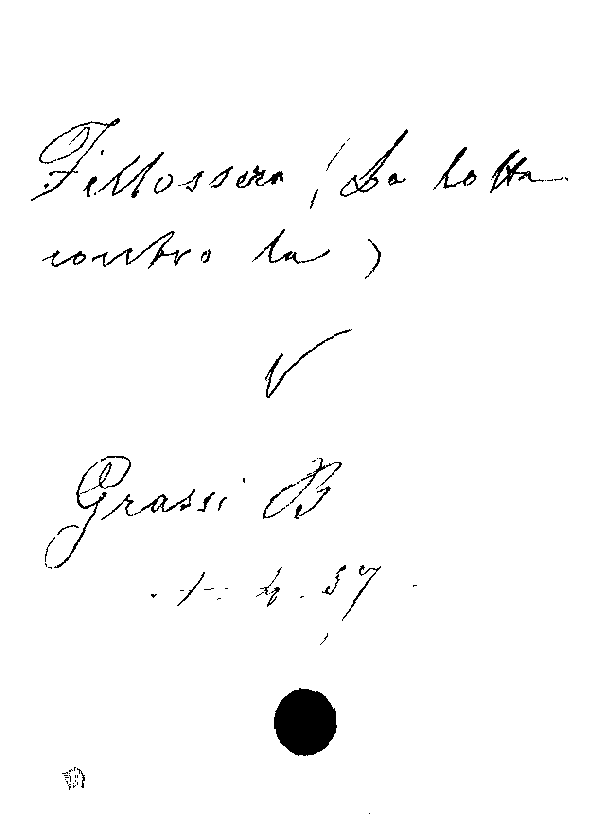 Fillossera (La lotta
contro la )
V
Grassi B
1. 4. 57